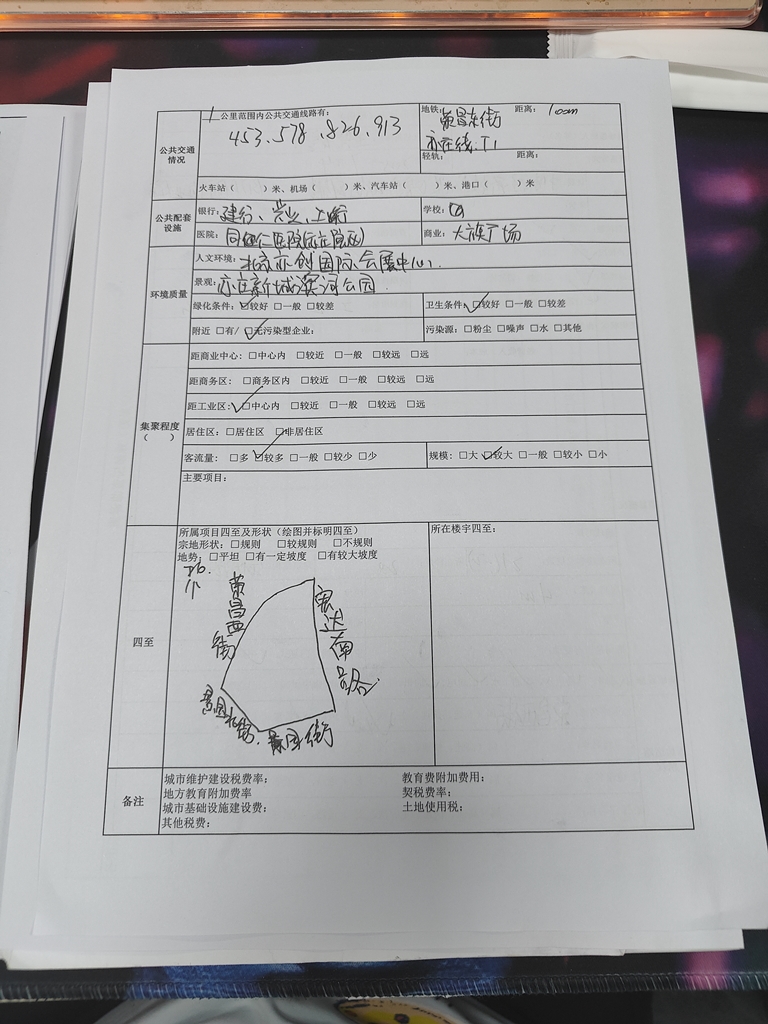 1公里范围内公共交通线路有:
453、578、826、913
地铁: 荣昌东街 距离: 100m
亦庄线、T1
公共交通情况
轻轨: 距离:
火车站（ ）米、机场（ ）米、汽车站（ ）米、港口（ ）米
公共配套设施
银行: 建行、兴业、工商 学校:
医院: 同仁医院(亦庄院区) 商业: 大族广场
人文环境: 北京亦创国际会展中心.
景观: 亦庄新城滨河公园.
环境质量
绿化条件: □较好 □一般 □较差 卫生条件: □较好 □一般 □较差
附近 □有/□无污染型企业: 污染源: □粉尘 □噪声 □水 □其他
距商业中心: □中心内 □较近 □一般 □较远 □远
距商务区: □商务区内 □较近 □一般 □较远 □远
距工业区: □中心内 □较近 □一般 □较远 □远
集聚程度（ ）
居住区: □居住区 □非居住区
客流量: □多 □较多 □一般 □较少 □少 规模: □大 □较大 □一般 □较小 □小
主要项目:
所属项目四至及形状（绘图并标明四至） 所在楼宇四至:
宗地形状: □规则 □较规则 □不规则
地势: □平坦 □有一定坡度 □有较大坡度
北.
荣昌西街
宏达南路
四至
景园北街.
景园街
备注
城市维护建设税费率: 教育费附加费用:
地方教育附加费率 契税费率:
城市基础设施建设费: 土地使用税:
其他税费: